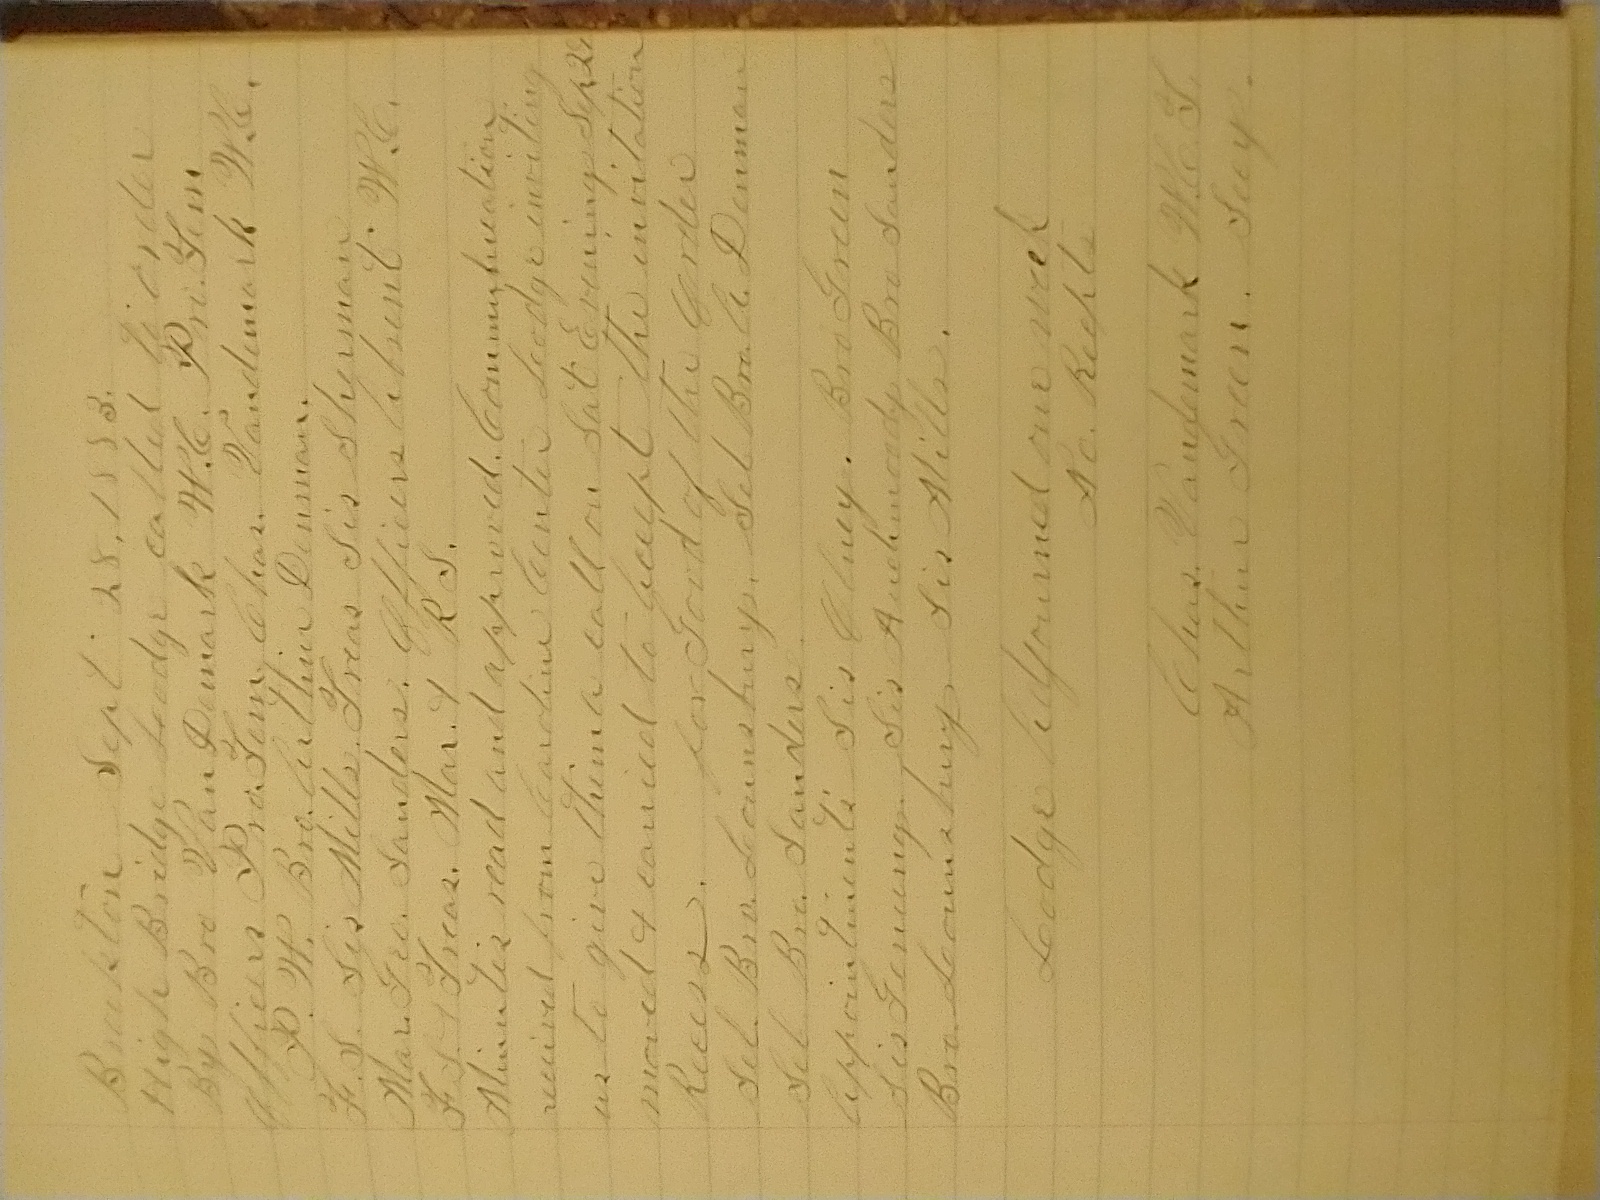 Brookton Sept 28, 1883.
High Bridge Lodge called to order
By Bro VanDemark W.C. Pro. Tem
Officers Pro. Tem, Chas. Vandemark W.C.
P. W. Bro. Arthur Denman.
F.S. Sis Mills. Treas Sis Sherman
Mar. Geo. Sanders. Officers Absent W.C.
F.S. & Treas. Mar. & R S.
Minutes read and approved. Communication
received from Caroline Center Lodge inviting
us to give them a call on Sat Evening Sep 29
moved & carried to Accept the invitation
Recess. for Good of the Order
Sel. Bro. Lounsbury. Sel Bro. A. Denman
Sel Bro. Sanders.
Appointments Sis Cluey. Bro Green
Sis Genung. Sis Auchmoody Bro Sanders
Bro. Lounsbury Sis Mills.
Lodge Adjourned one week
No. Recpts
Chas. Vandemark W.C.T.
Arthur Green. Secy.